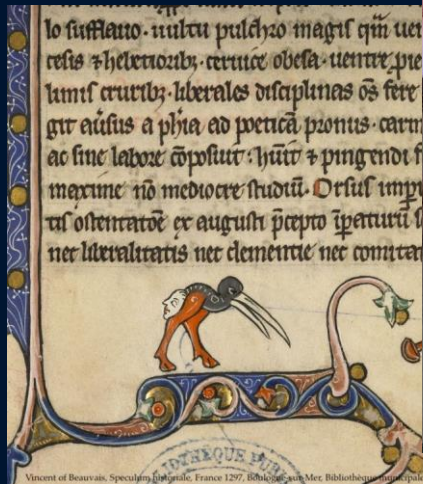 lo sufflauo. uultu pulchro magis qm uen
cesis ⁊ hebetiorib; ceruice obesa. uentre pie
limis crurib; liberales disciplinas os fere
git ausus a phia ad poeticā pronus. carm
ac sine labore cōposuit. huit ⁊ pingendi f
maxime nō mediocre studiū. Orsus impi
tis ostentatōe ex augusti p̄cepto īpaturū s
nec liberalitatis nec clementie nec comitat
BIOTHEQUE PUB
Vincent of Beauvais, Speculum historiale, France 1297, Boulogne-sur-Mer, Bibliothèque municipale